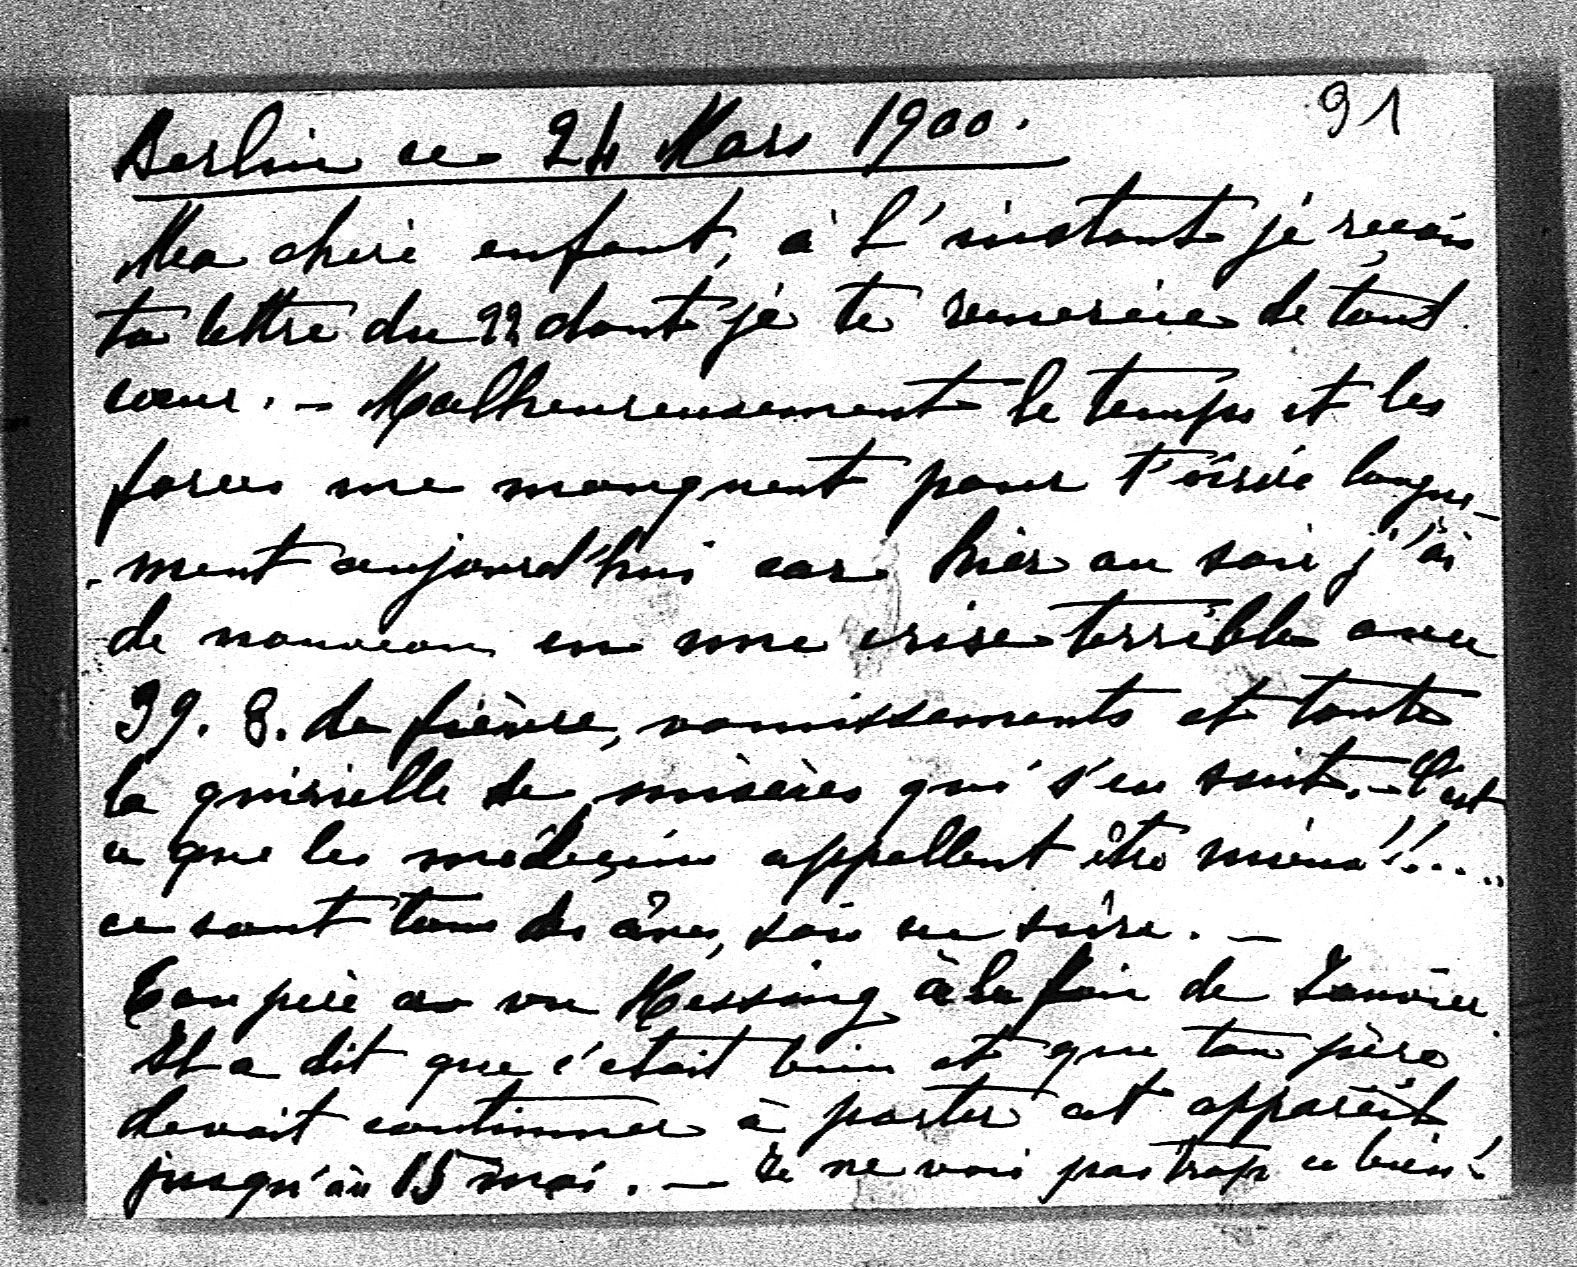 91
Berlin ce 24 Mars 1900.
Ma chère enfant, à l'instant je reçois
ta lettre du 22 dont je te remercie de tout
cœur. – Malheureusement le temps et les
forces me manquent pour t'écrire longue-
-ment aujourd'hui car hier au soir j'ai
de nouveau eu une crise terrible avec
39. 8. de fièvre, vomissements et toute
la quirielle de misères qui s'en suit. – C'est
ce que les médecins appellent être mieux!!...
ce sont tous des ânes, sois en sûre. –
Ton père a vu Hessing à la fin de Janvier.
Il a dit que c'était bien et que ton père
devait continuer à porter cet appareil
jusqu'au 15 mai. – Je ne vois pas trop ce bien!